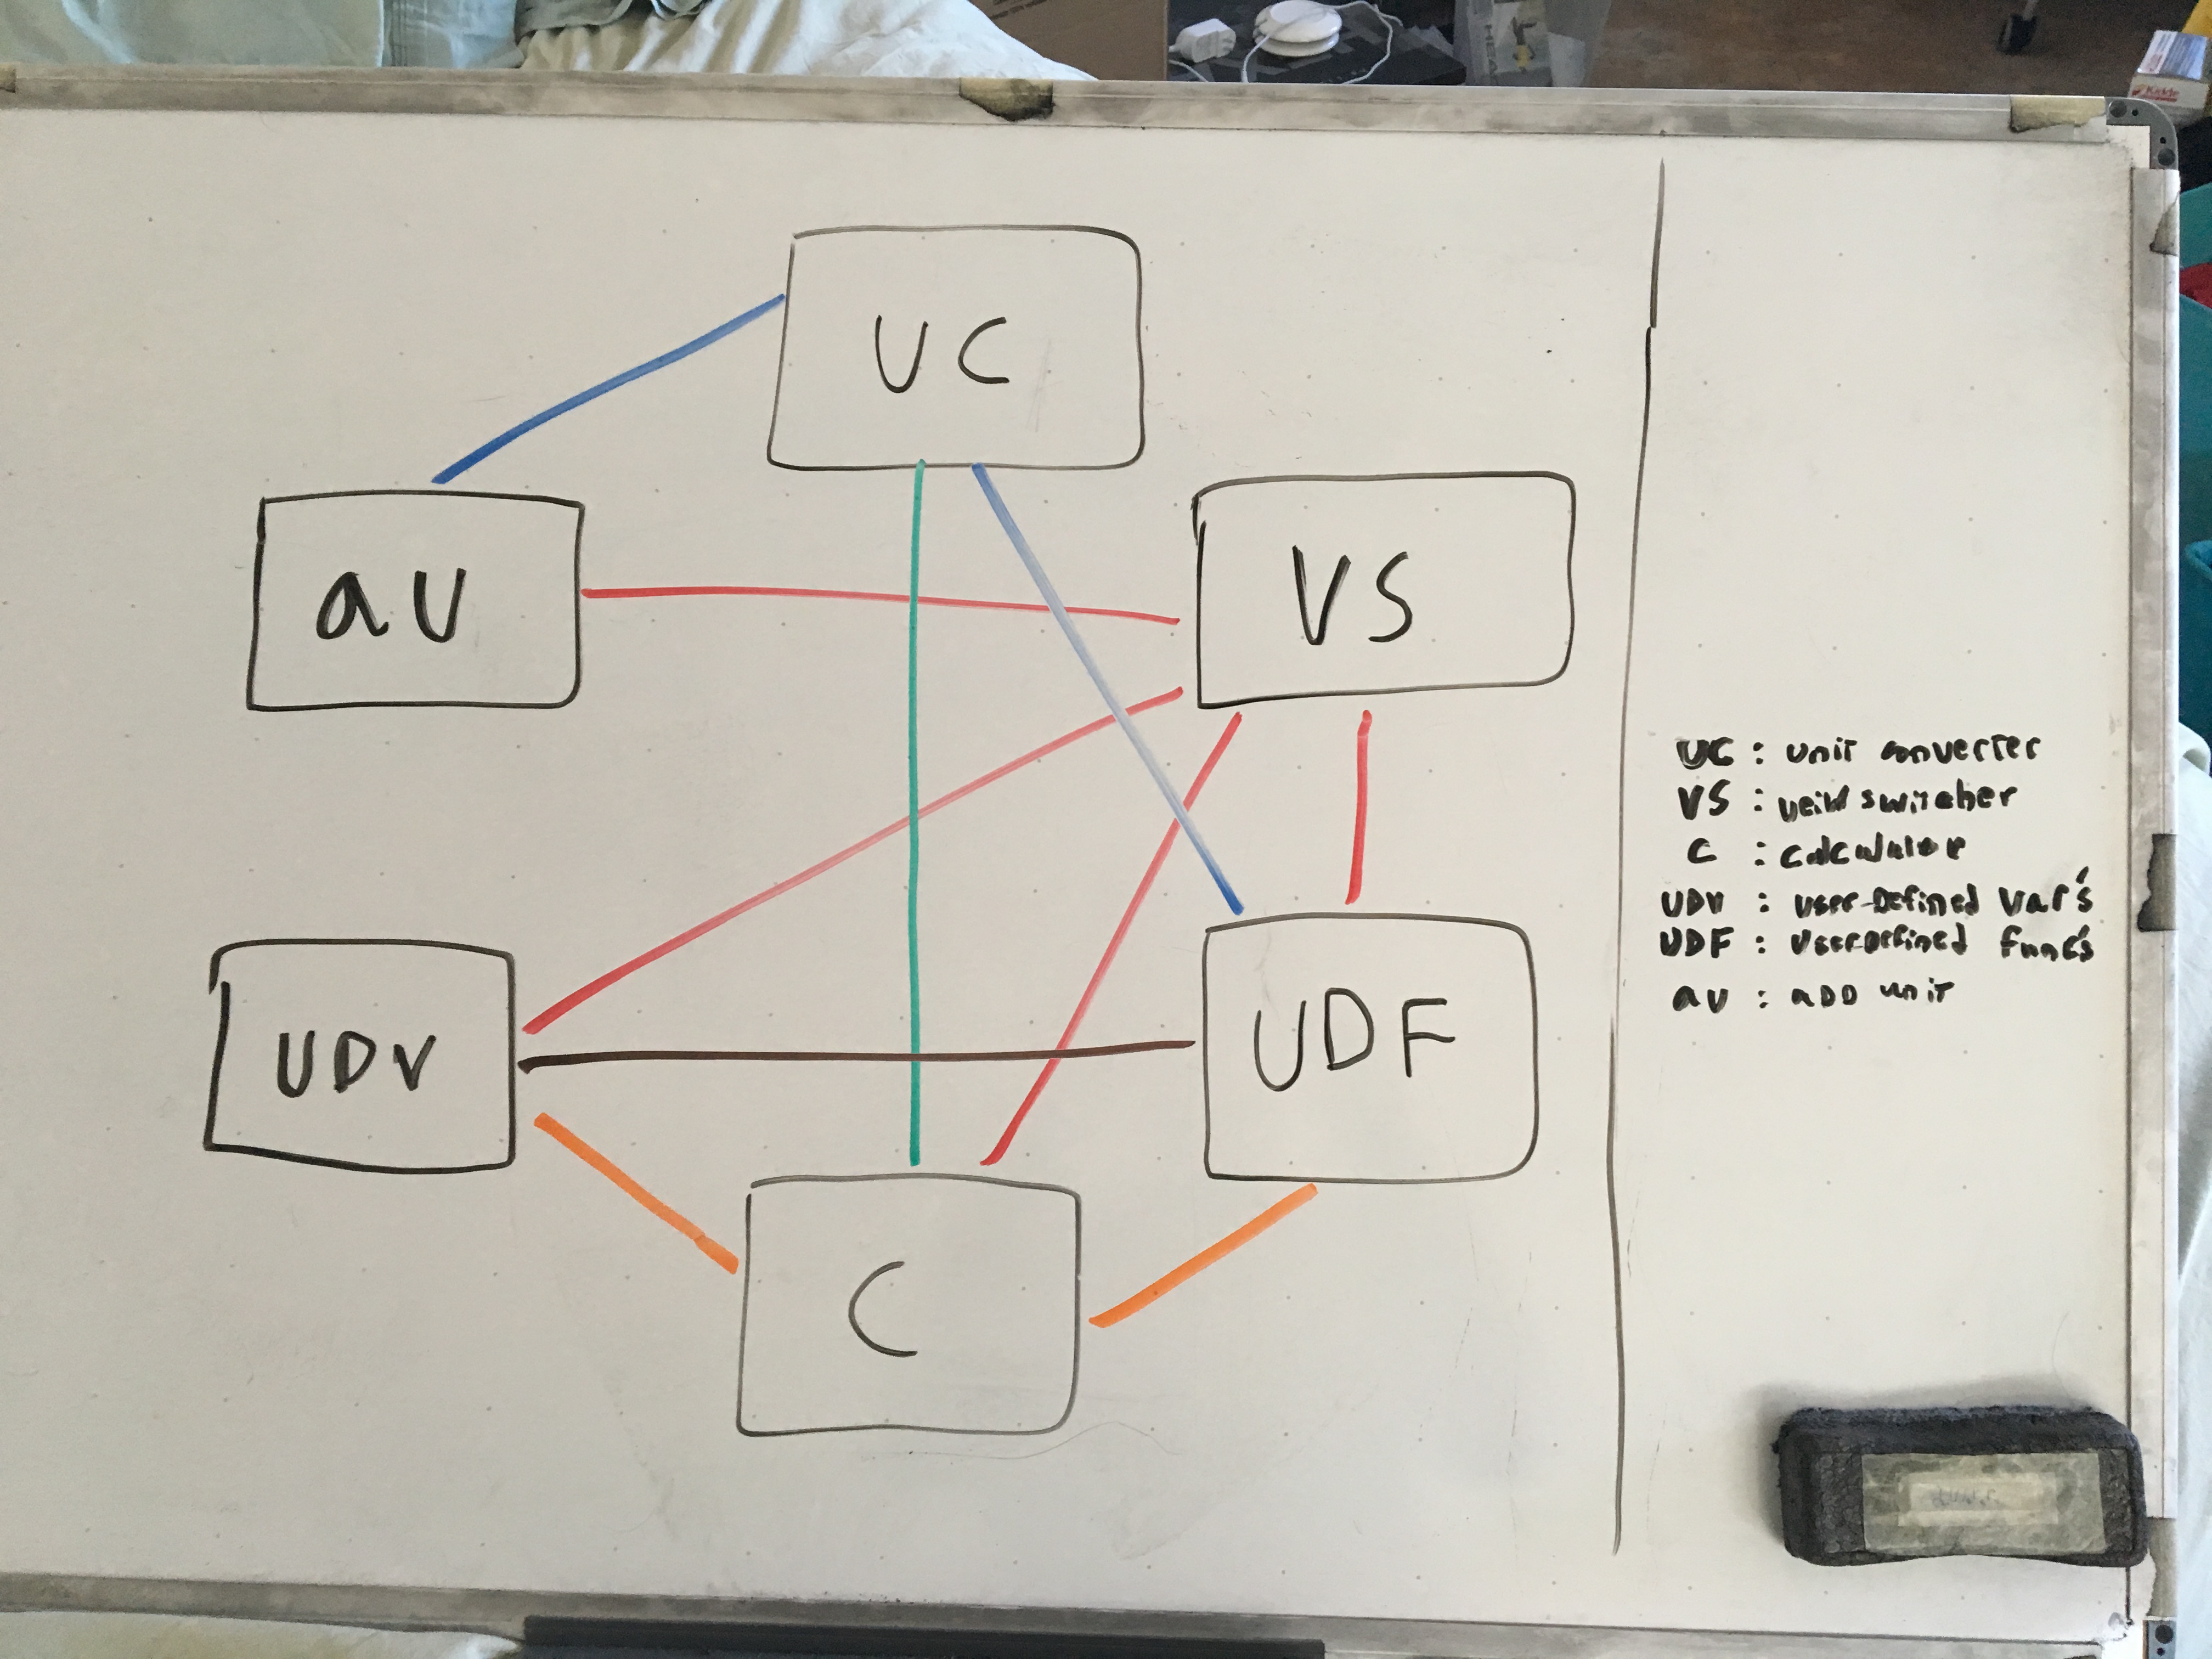 Kidde
UC
VS
au
UDV
UDF
C
UC : unit converter
VS : veiw switcher
C : calculator
UDV : user-Defined Var's
UDF : UserDefined func's
au : aDD unit